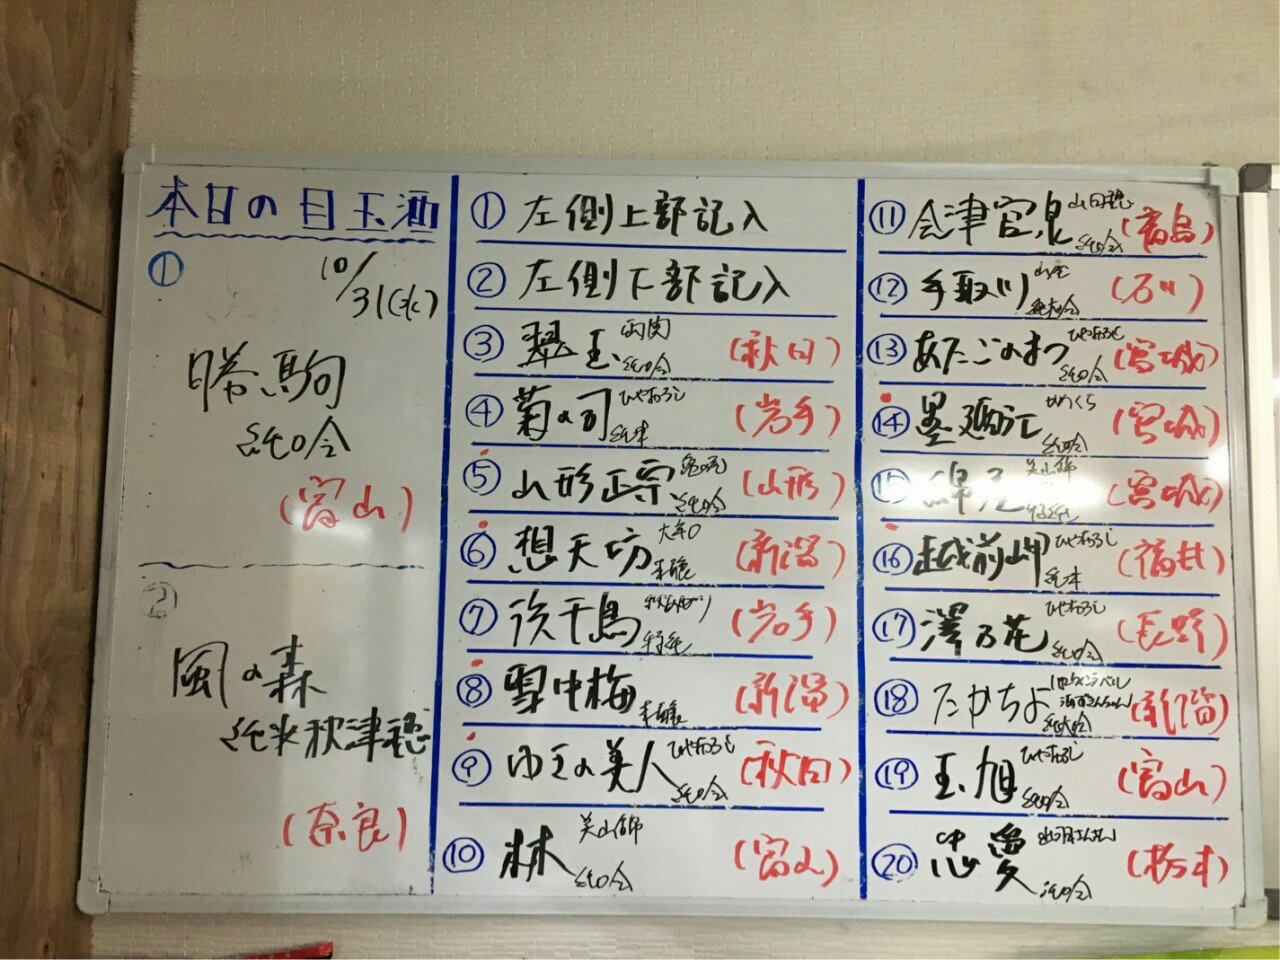 本日の目玉酒
①
10/31(水)
勝駒
純吟
(富山)
②
風の森
純米秋津穂
(奈良)
① 左側上部記入
② 左側下部記入
③ 翠玉 両関 純吟 (秋田)
④ 菊の司 ひやおろし 純米 (岩手)
⑤ 山形正宗 純吟 (山形)
⑥ 想天坊 大辛口 本醸 (新潟)
⑦ 浜千鳥 特純 (岩手)
⑧ 雪中梅 本醸 (新潟)
⑨ ゆきの美人 ひやおろし 純吟 (秋田)
⑩ 林 美山錦 純吟 (富山)
⑪ 会津宮泉 山田穂 純吟 (福島)
⑫ 手取川 山廃 純米吟 (石川)
⑬ あたごのまつ ひやおろし 純吟 (宮城)
⑭ 墨廼江 純吟 (宮城)
⑮ 綿屋 美山錦 特純 (宮城)
⑯ 越前岬 ひやおろし 純米 (福井)
⑰ 澤乃花 ひやおろし 純吟 (長野)
⑱ たかちよ 純大吟 (新潟)
⑲ 玉旭 ひやおろし 純吟 (富山)
⑳ 忠愛 純吟 (栃木)